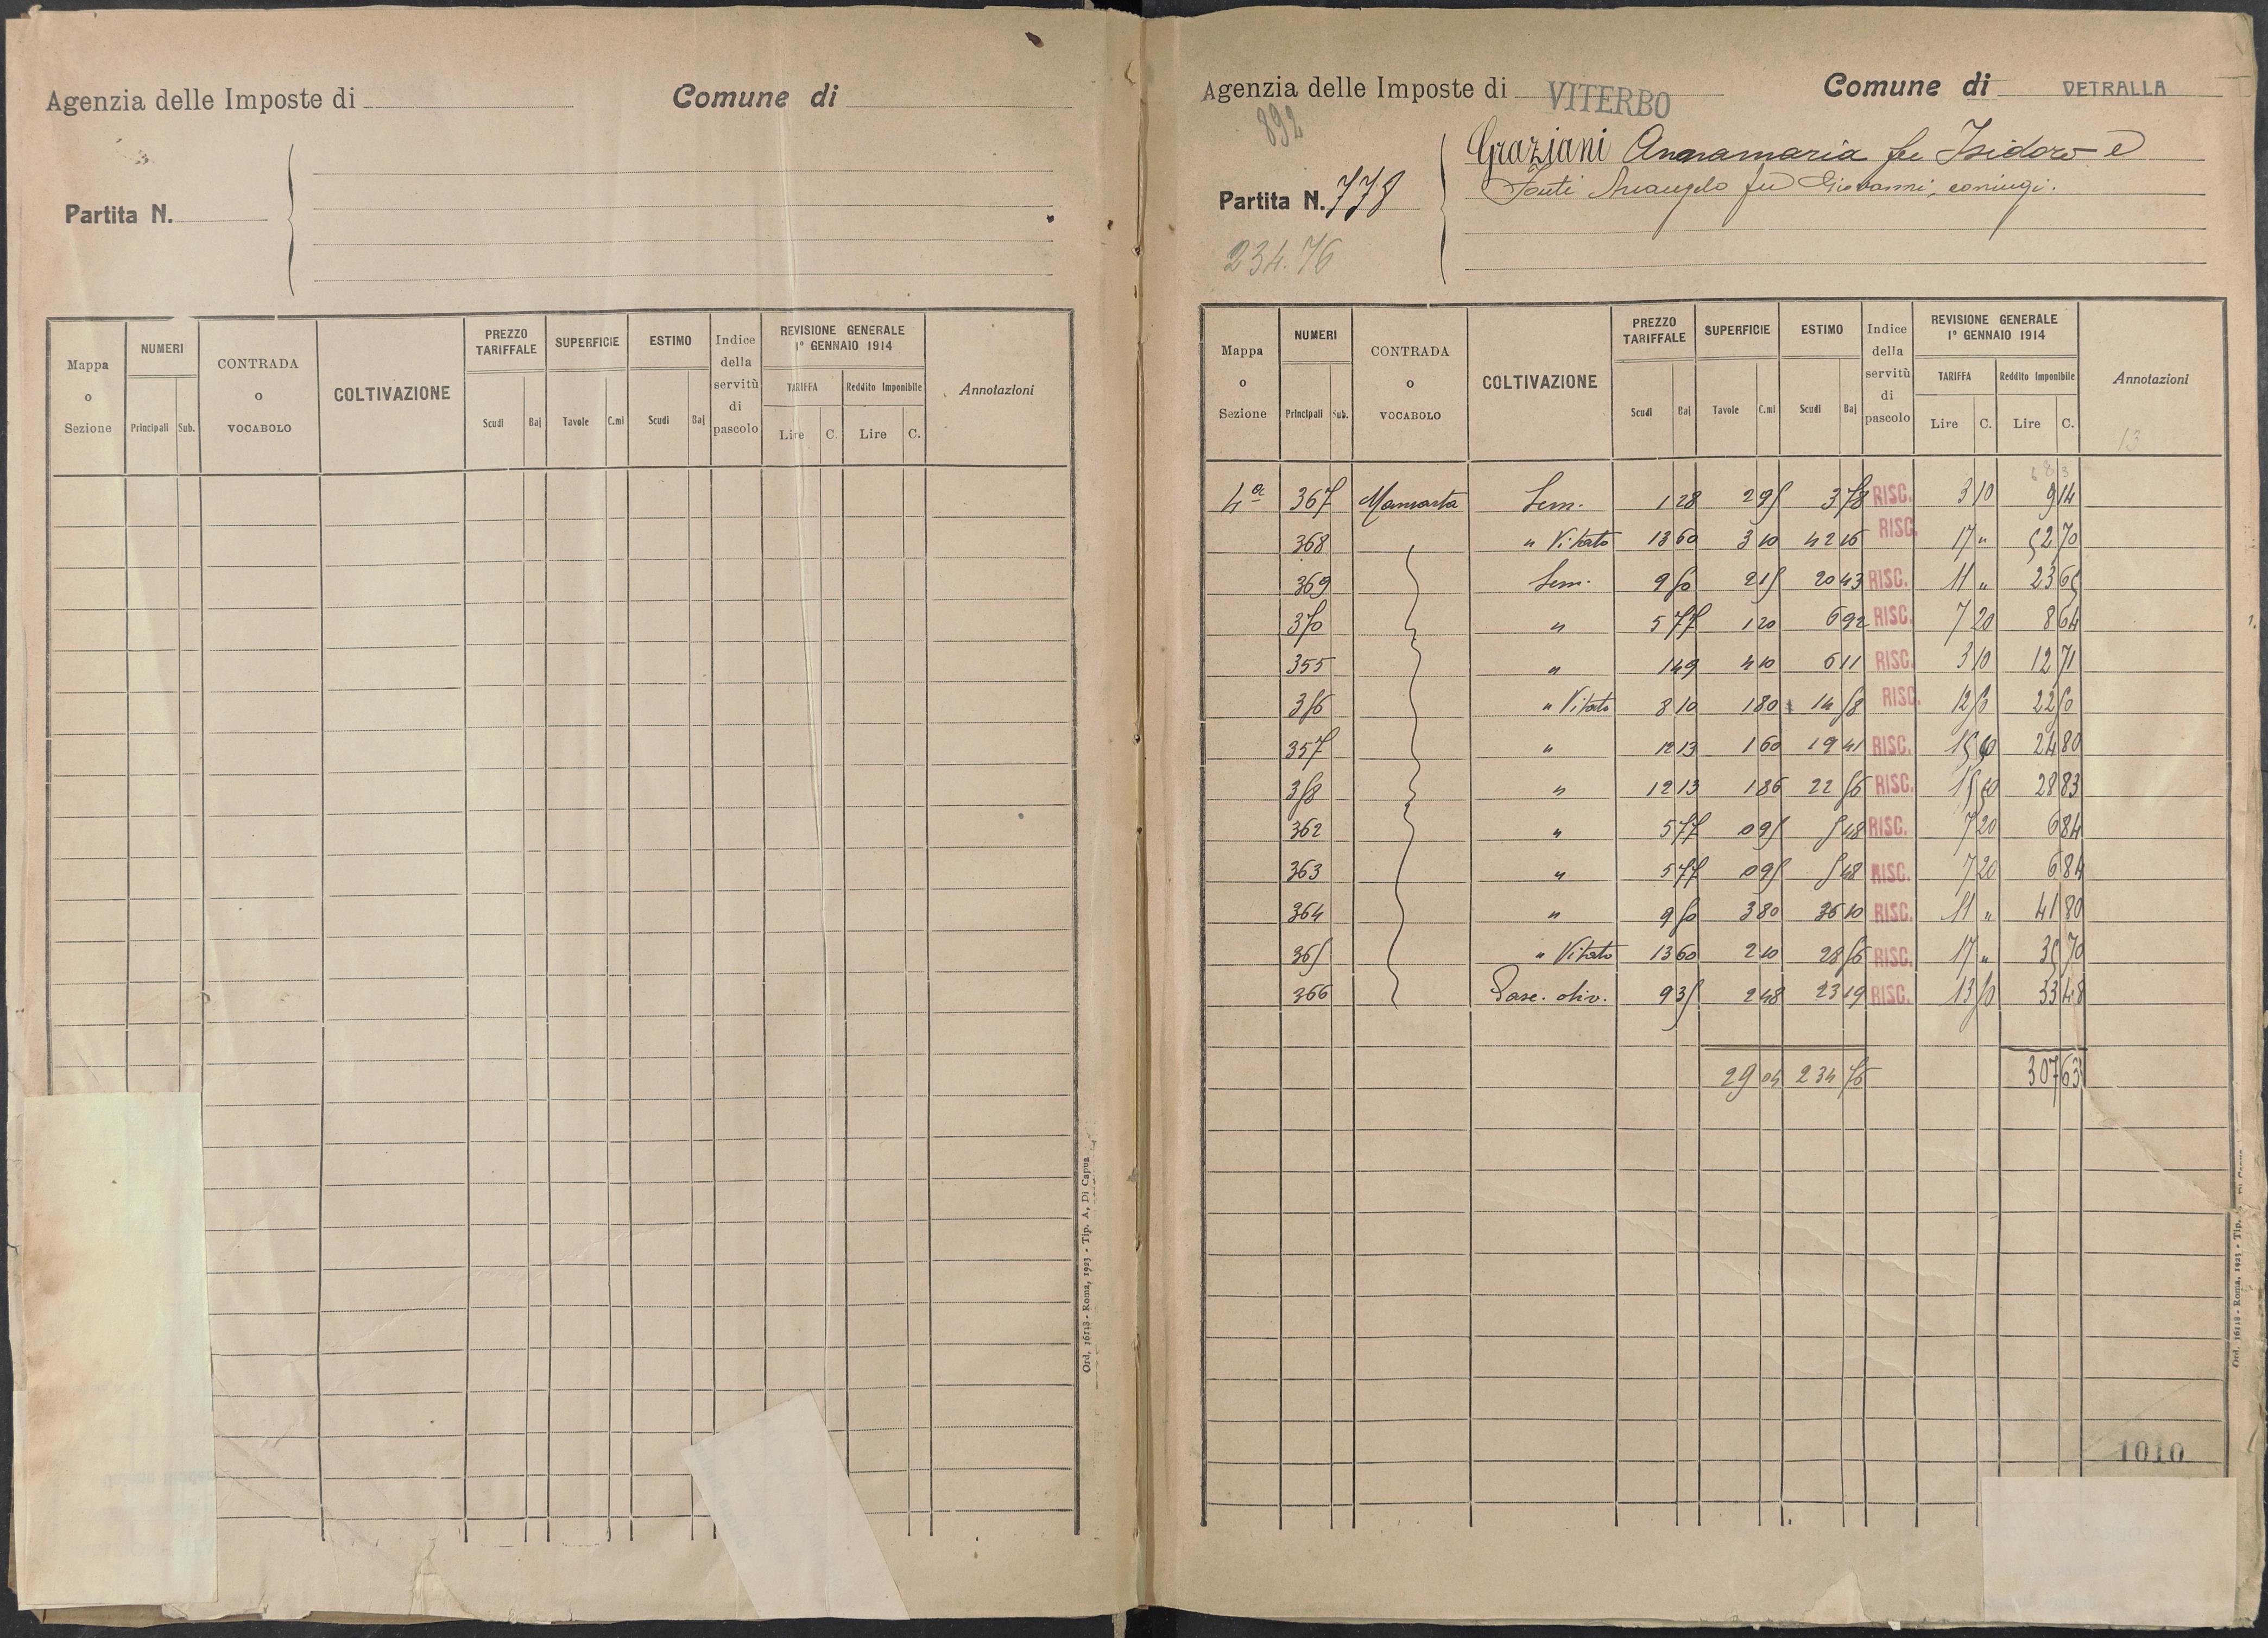 Agenzia delle Imposte di
Comune di
Partita N.
Mappa o Sezione
NUMERI
Principali
Sub.
CONTRADA o VOCABOLO
COLTIVAZIONE
PREZZO TARIFFALE
Scudi
Baj
SUPERFICIE
Tavole
C.mi
ESTIMO
Scudi
Baj
Indice della servitù di pascolo
REVISIONE GENERALE
1° GENNAIO 1914
TARIFFA
Lire
C.
Reddito Imponibile
Lire
C.
Annotazioni
Ord. 16118 - Roma, 1923 - Tip. A. Di Capua
Agenzia delle Imposte di VITERBO
Comune di VETRALLA
892
Graziani Annamaria fu Isidoro e
Partita N. 778
Fonti Arcangelo fu Giovanni, coniugi.
234.76
Mappa o Sezione
NUMERI
Principali
Sub.
CONTRADA o VOCABOLO
COLTIVAZIONE
PREZZO TARIFFALE
Scudi
Baj
SUPERFICIE
Tavole
C.mi
ESTIMO
Scudi
Baj
Indice della servitù di pascolo
REVISIONE GENERALE
1° GENNAIO 1914
TARIFFA
Lire
C.
Reddito Imponibile
Lire
C.
Annotazioni
13
4a 367 Sem. 1 28 2 95 3 78 RISC. 3 10 9 14
368 " Vitato 13 60 3 10 42 16 RISC. 17 " 52 70
369 Sem. 9 50 2 15 20 43 RISC. 11 " 23 65
370 " 5 77 1 20 6 92 RISC. 7 20 8 64
355 " 1 49 4 10 6 11 RISC. 3 10 12 71
356 " Vitato 8 10 1 80 14 58 RISC. 12 50 22 50
357 " 12 13 1 60 19 41 RISC. 15 50 24 80
358 " 12 13 1 86 22 56 RISC. 15 50 28 83
362 " 5 77 0 95 5 48 RISC. 7 20 6 84
363 " 5 77 0 95 5 48 RISC. 7 20 6 84
364 " 9 50 3 80 36 10 RISC. 11 " 41 80
365 " Vitato 13 60 2 10 28 56 RISC. 17 " 35 70
366 Pasc. oliv. 9 35 2 48 23 19 RISC. 13 50 33 48
29 04 234 76 307 63
1010
Ord. 16118 - Roma, 1923 - Tip.